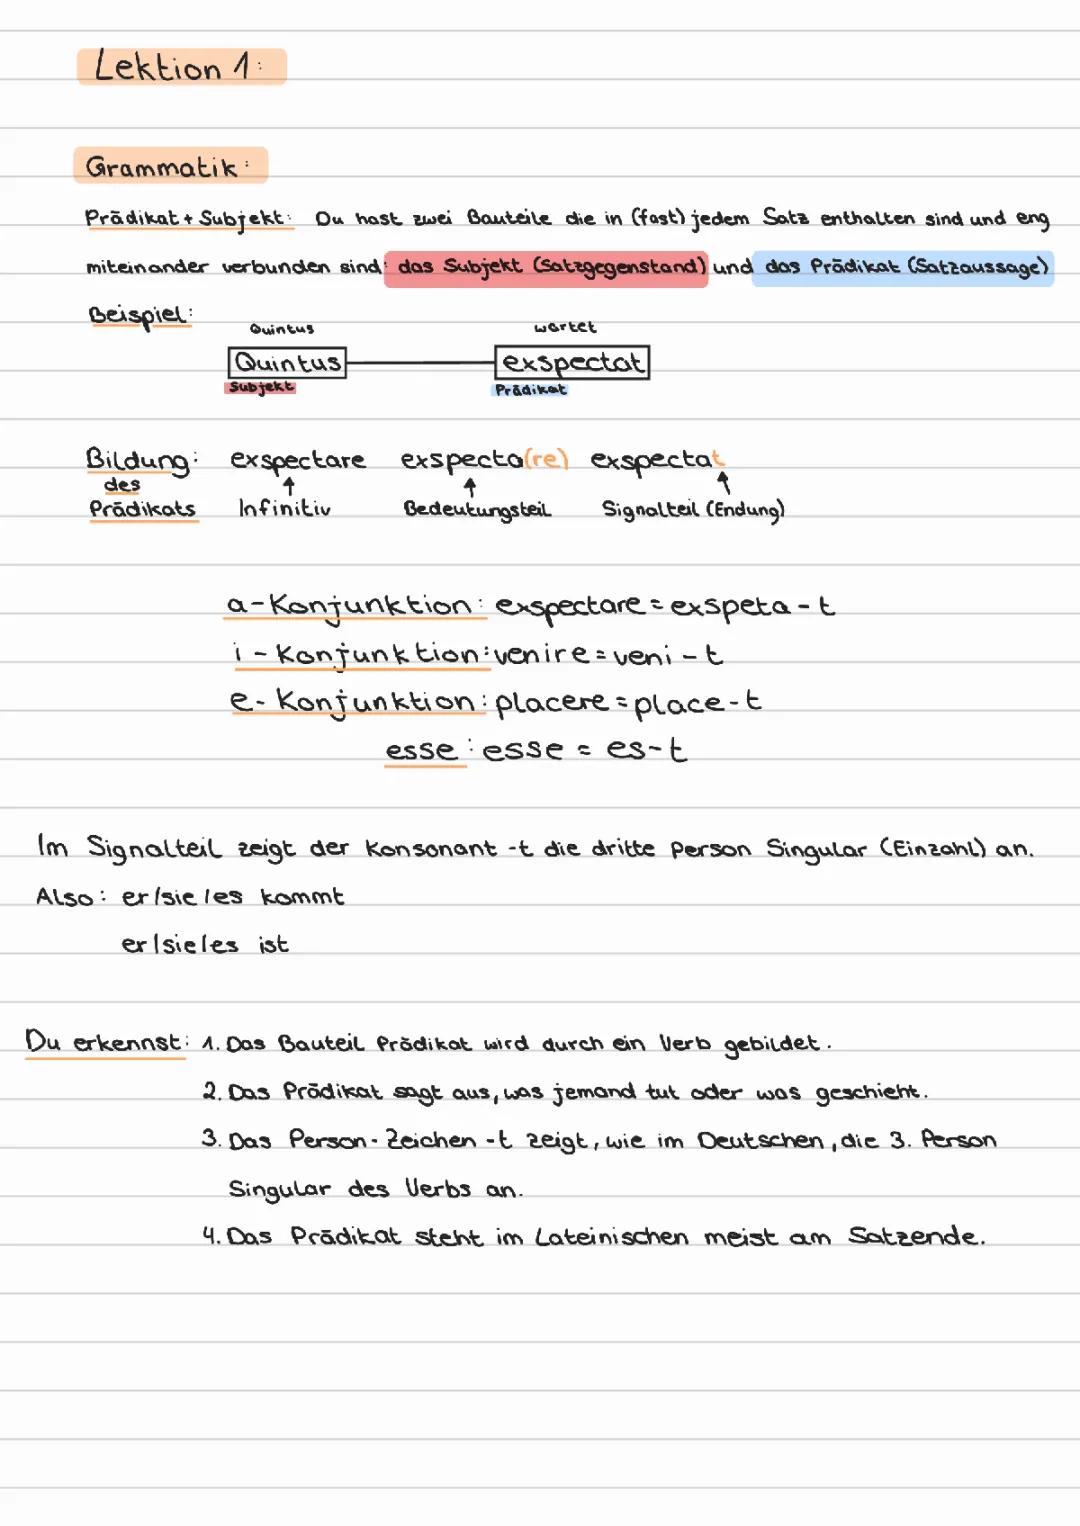 Lektion 1:
Grammatik:
Prädikat + Subjekt: Du hast zwei Bauteile die in (fast) jedem Satz enthalten sind und eng
miteinander verbunden sind: das Subjekt (Satzgegenstand) und das Prädikat (Satzaussage)
Beispiel:
Quintus wartet
Quintus exspectat
Subjekt Prädikat
Bildung: exspectare exspecta(re) exspectat
des
Prädikats Infinitiv Bedeutungsteil Signalteil (Endung)
a-Konjunktion: exspectare = expeta-t
i-Konjunktion: venire = veni-t
e-Konjunktion: placere = place-t
esse: esse = es-t
Im Signalteil zeigt der Konsonant -t die dritte Person Singular (Einzahl) an.
Also: er/sie/es kommt
er/sie/es ist
Du erkennst: 1. Das Bauteil Prädikat wird durch ein Verb gebildet.
2. Das Prädikat sagt aus, was jemand tut oder was geschieht.
3. Das Person-Zeichen -t zeigt, wie im Deutschen, die 3. Person
Singular des Verbs an.
4. Das Prädikat steht im Lateinischen meist am Satzende.